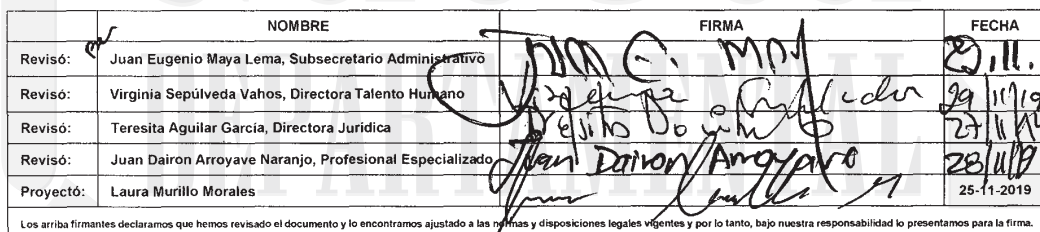 NOMBRE FIRMA FECHA
Revisó: Juan Eugenio Maya Lema, Subsecretario Administrativo
Revisó: Virginia Sepúlveda Vahos, Directora Talento Humano 29/11/19
Revisó: Teresita Aguilar García, Directora Jurídica
Revisó: Juan Dairon Arroyave Naranjo, Profesional Especializado Juan Dairon Arroyave
Proyectó: Laura Murillo Morales 25-11-2019
Los arriba firmantes declaramos que hemos revisado el documento y lo encontramos ajustado a las normas y disposiciones legales vigentes y por lo tanto, bajo nuestra responsabilidad lo presentamos para la firma.